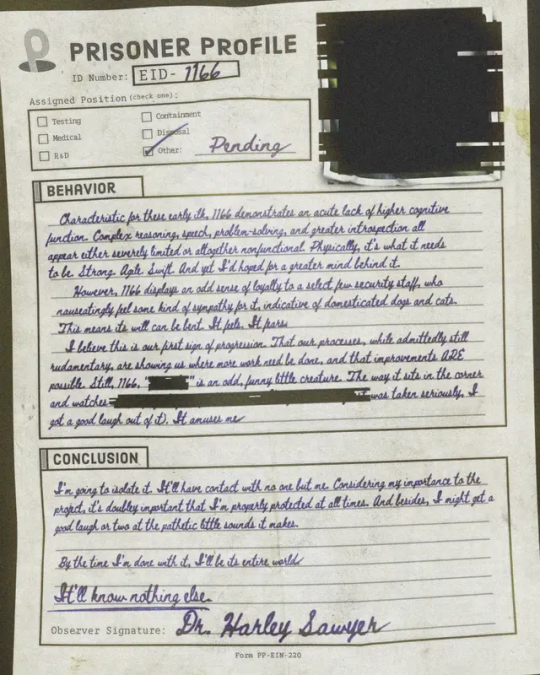 PRISONER PROFILE
ID Number: EID- 1166
Assigned Position (check one):
Testing
Containment
Medical
Disposal
R&D
Other: Pending
BEHAVIOR
Characteristic for these early 1166 demonstrates an acute lack of higher cognitive
function. Complex reasoning, speech, problem-solving, and greater introspection all
appear either severely limited or altogether nonfunctional. Physically, it's what it needs
to be. Strong. Agile. Swift. And yet I'd hoped for a greater mind behind it.
However, 1166 displays an odd sense of loyalty to a select few security staff, who
nauseatingly feel some kind of sympathy for it, indicative of domesticated dogs and cats.
This means its will can be bent. It feels. It fears.
I believe this is our first sign of progression. That our processes, while admittedly still
rudamentary, are showing us where more work need be done, and that improvements ARE
possible. Still, 1166, " " is an odd, funny little creature. The way it sits in the corner
and watches was taken seriously, I
got a good laugh out of it). It amuses me
CONCLUSION
I'm going to isolate it. It'll have contact with no one but me. Considering my importance to the
project, it's doubley important that I'm properly protected at all times. And besides, I might get a
good laugh or two at the pathetic little sounds it makes.
By the time I'm done with it, I'll be its entire world
It'll know nothing else.
Observer Signature: Dr. Harley Sawyer
Form PP-EIN-220